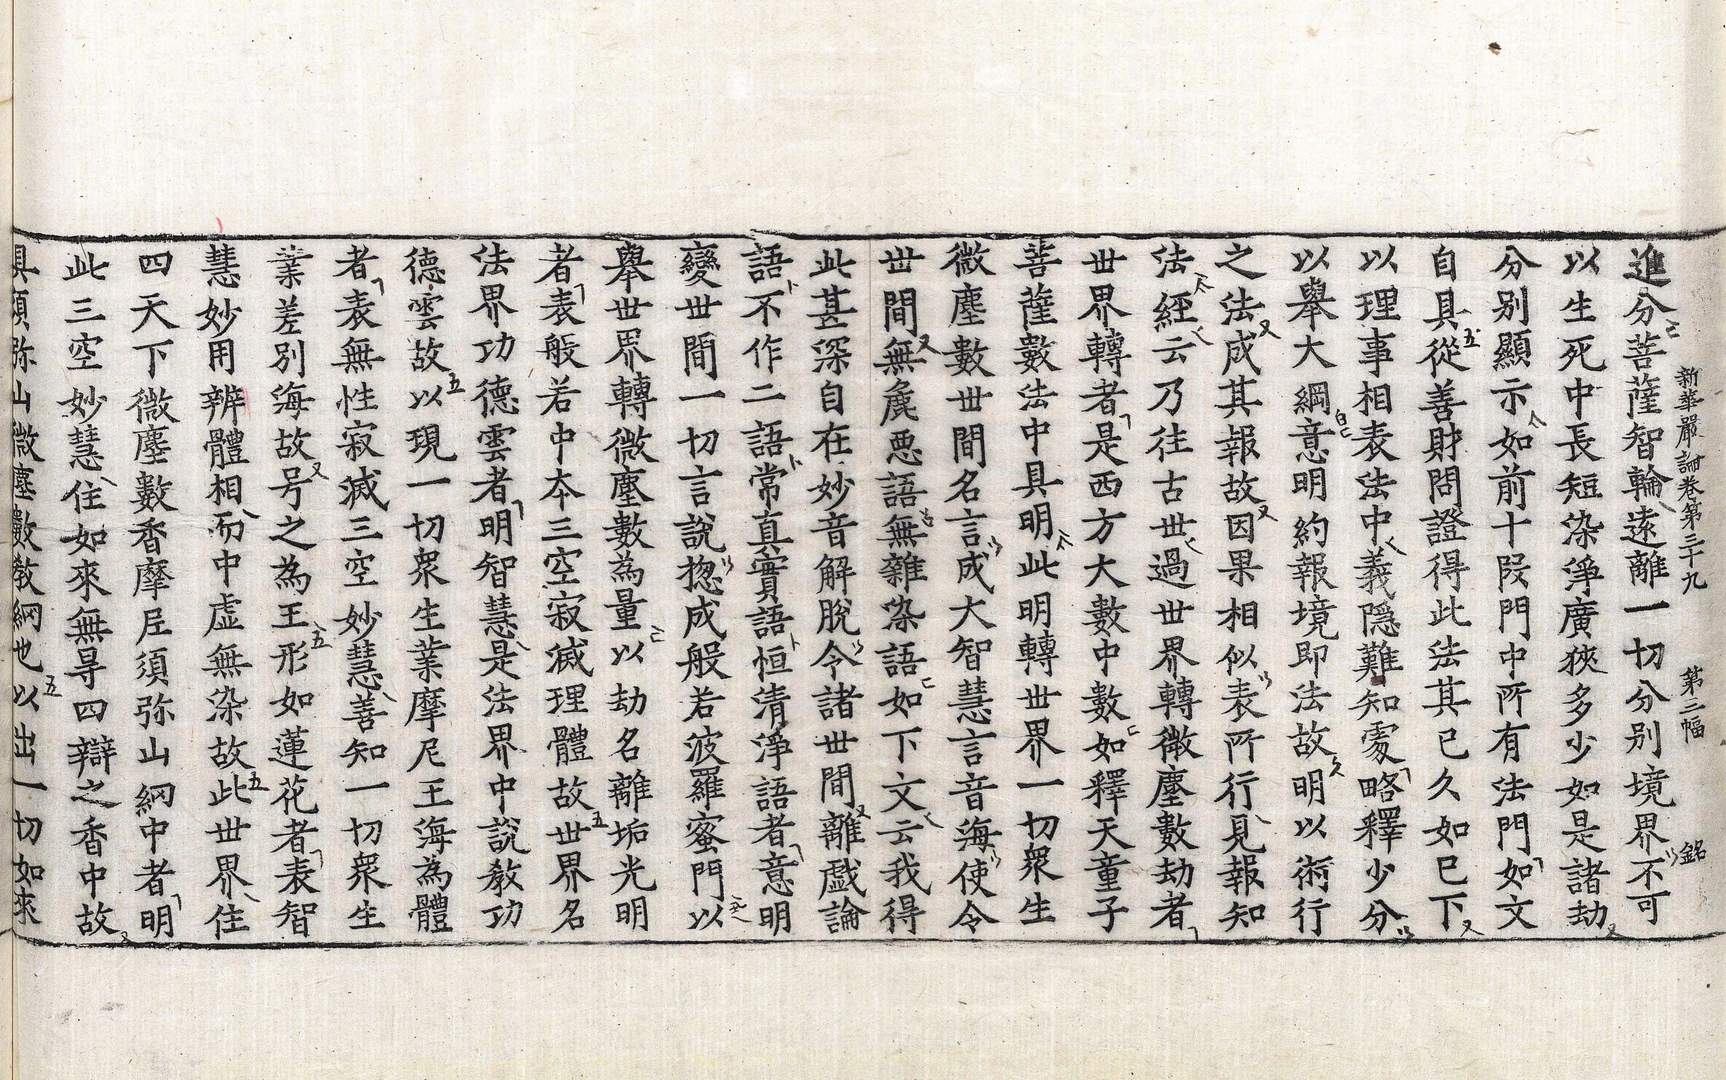 新華嚴論卷第三十九 第二幅 銘
進分菩薩智輪遠離一切分別境界不可
以生死中長短染淨廣狹多少如是諸劫
分別顯示如前十段門中所有法門如文
自具從善財問證得此法其已久如已下
以理事相表法中義隱難知處略釋少分
以舉大綱意明約報境即法故明以術行
之法成其報故因果相似表所行見報知
法經云乃往古世過世界轉微塵數劫者
世界轉者是西方大數中數如釋天童子
菩薩數法中具明此明轉世界一切衆生
微塵數世間名言成大智慧言音海使令
世間無麁惡語無雜染語如下文云我得
此甚深自在妙音解脫令諸世間離戲論
語不作二語常真實語恒清淨語者意明
變世間一切言說惣成般若波羅蜜門以
舉世界轉微塵數為量以劫名離垢光明
者表般若中夲三空寂滅理體故世界名
法界功德雲者明智慧是法界中說教功
德雲故以現一切衆生業摩尼王海為體
者表無性寂滅三空妙慧善知一切衆生
業差別海故号之為王形如蓮花者表智
慧妙用辨體相而中虛無染故此世界住
四天下微塵數香摩尼須弥山網中者明
此三空妙慧住如來無㝵四辯之香中故
具須弥山微塵數教網也以出一切如來